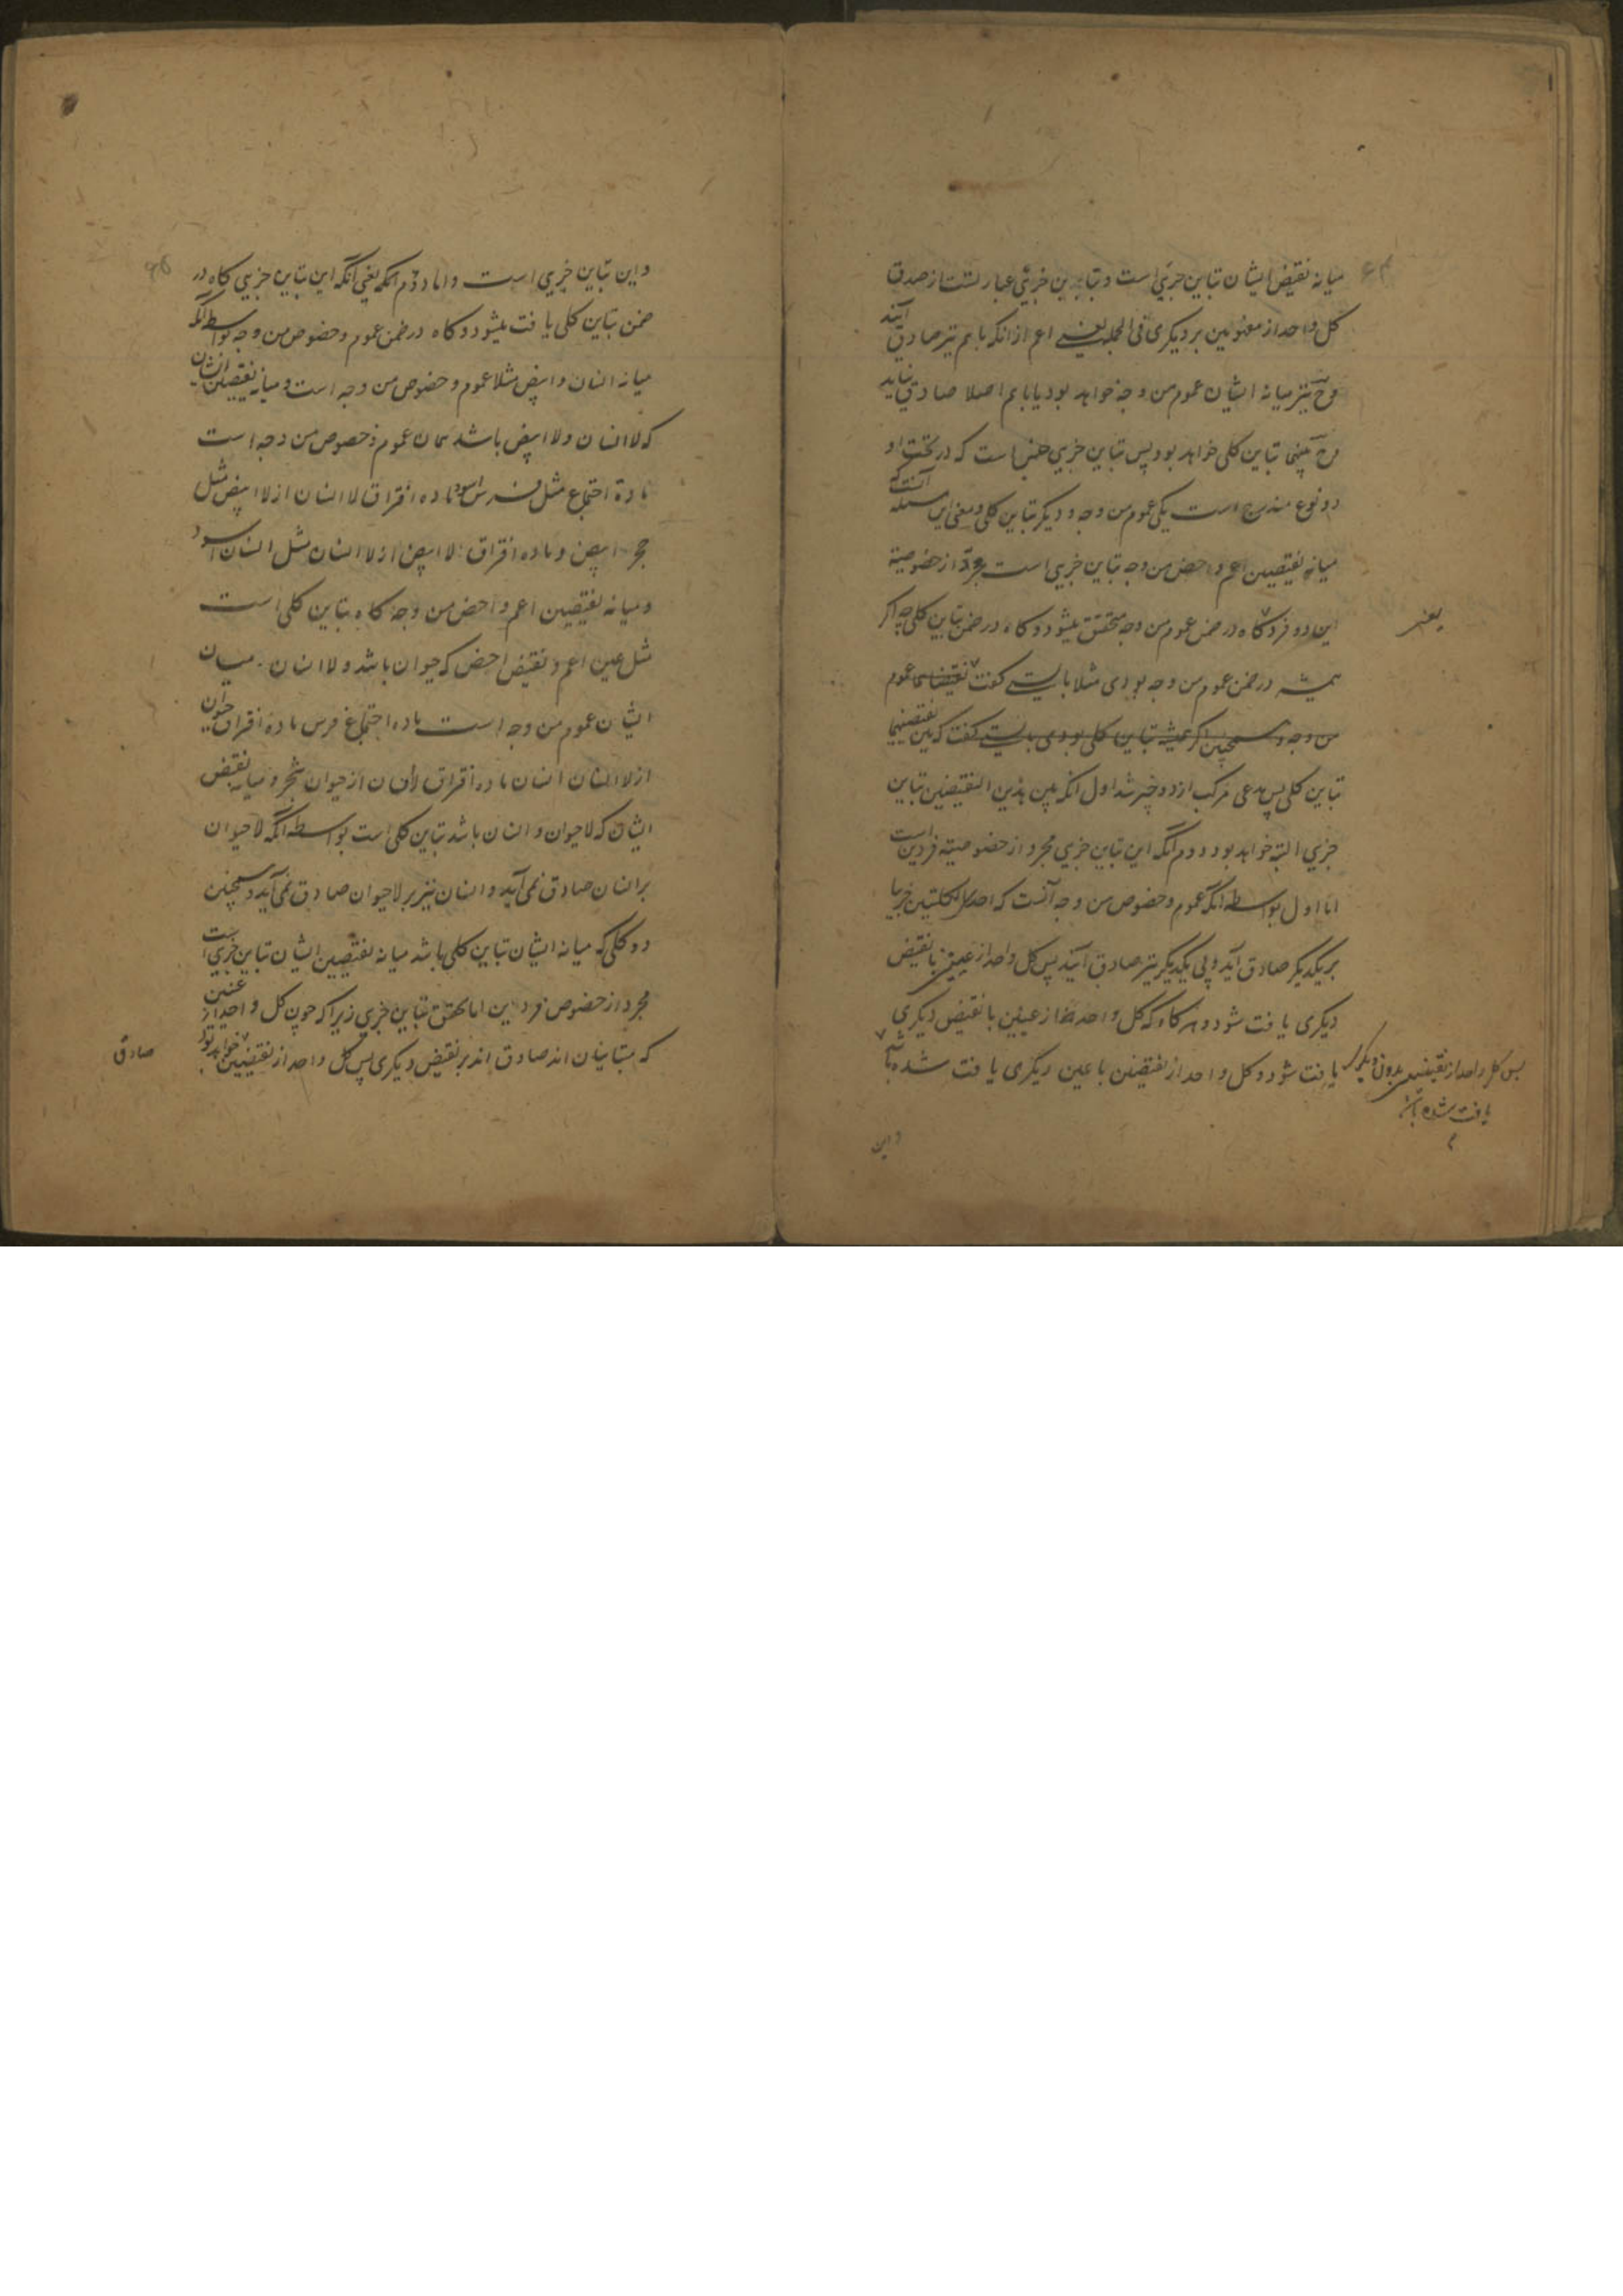 میانه نقیض ایشان تباین جزیی است و تباین جزیی عبارتست از صدق
کل واحد از مفهومین بر دیگری فی الجمله یعنی اعم از انکه باهم نیز صادق آیند
وح نیز میانه ایشان عموم من وجه خواهد بود یا باهم اصلا صادق نیایند
وح بینهما تباین کلی خواهد بود پس تباین جزیی جنس است که در تحت او
دو نوع مندرج است یکی عموم من وجه و دیگر تباین کلی و معنی این مسئله آنست که
میانه نقیضین اعم و اخص من وجه تباین جزیی است مجرد از خصوصیة
این دو فرد گاه در ضمن عموم من وجه متحقق میشود و گاه در ضمن تباین کلی چه اگر
یعنی
همیشه در ضمن عموم من وجه بودی مثلا بایستی گفت نقیضاهما عموم
من وجه و همچنین اگر همیشه تباین کلی بودی بایستی گفت که بین نقیضیهما
تباین کلی پس مدعی مرکب از دو چیز شد اول انکه بین هذین النقیضین تباین
جزیی البته خواهد بود دوم انکه این تباین جزیی مجرد از خصوصیته فردین است
اما اول بواسطه انکه عموم و خصوص من وجه آنست که احد الکلیتین
بر یکدیگر صادق آید و بی یکدیگر نیز صادق آیند پس کل واحد از عینین با نقیض
دیگری یافت شود و هر گاه که کل واحد از عینین با نقیض دیگری
یافت شود و کل واحد از نقیضین با عین دیگری یافت شده باشد
پس کل واحد از نقیضین بدون دیگری
یافت شده باشد
و این
و این تباین جزیی است و اما دوم انکه یعنی انکه این تباین جزیی گاه در
ضمن تباین کلی یافت میشود و گاه در ضمن عموم و خصوص من وجه بواسطه انکه
میانه انسان و ابیض مثلا عموم و خصوص من وجه است و میانه نقیضین ایشان
که لا انسان و لا ابیض باشد همان عموم و خصوص من وجه است
مادة اجتماع مثل فرس اسود ماده افتراق لا انسان از لا ابیض مثل
حجر ابیض و ماده افتراق لا ابیض از لا انسان مثل انسان اسود
و میانه نقیضین اعم و اخص من وجه گاه تباین کلی است
مثل عین اعم و نقیض اخص که حیوان باشد و لا انسان میان
ایشان عموم من وجه است ماده اجتماع فرس ماده افتراق حیوان
از لا انسان انسان ماده افتراق لا انسان از حیوان شجر و میانه نقیض
ایشان که لا حیوان و انسان باشد تباین کلی است بواسطه انکه لا حیوان
بر انسان صادق نمی آید و انسان نیز بر لا حیوان صادق نمی آید و همچنین
دو کلی که میانه ایشان تباین کلی باشد میانه نقیضین ایشان تباین جزیی است
مجرد از خصوص فردین اما تحقق تباین جزیی زیرا که چون کل واحد از عینین
که متباینان اند صادق اند بر نقیض دیگری پس کل واحد از نقیضین خواهد بود
صادق